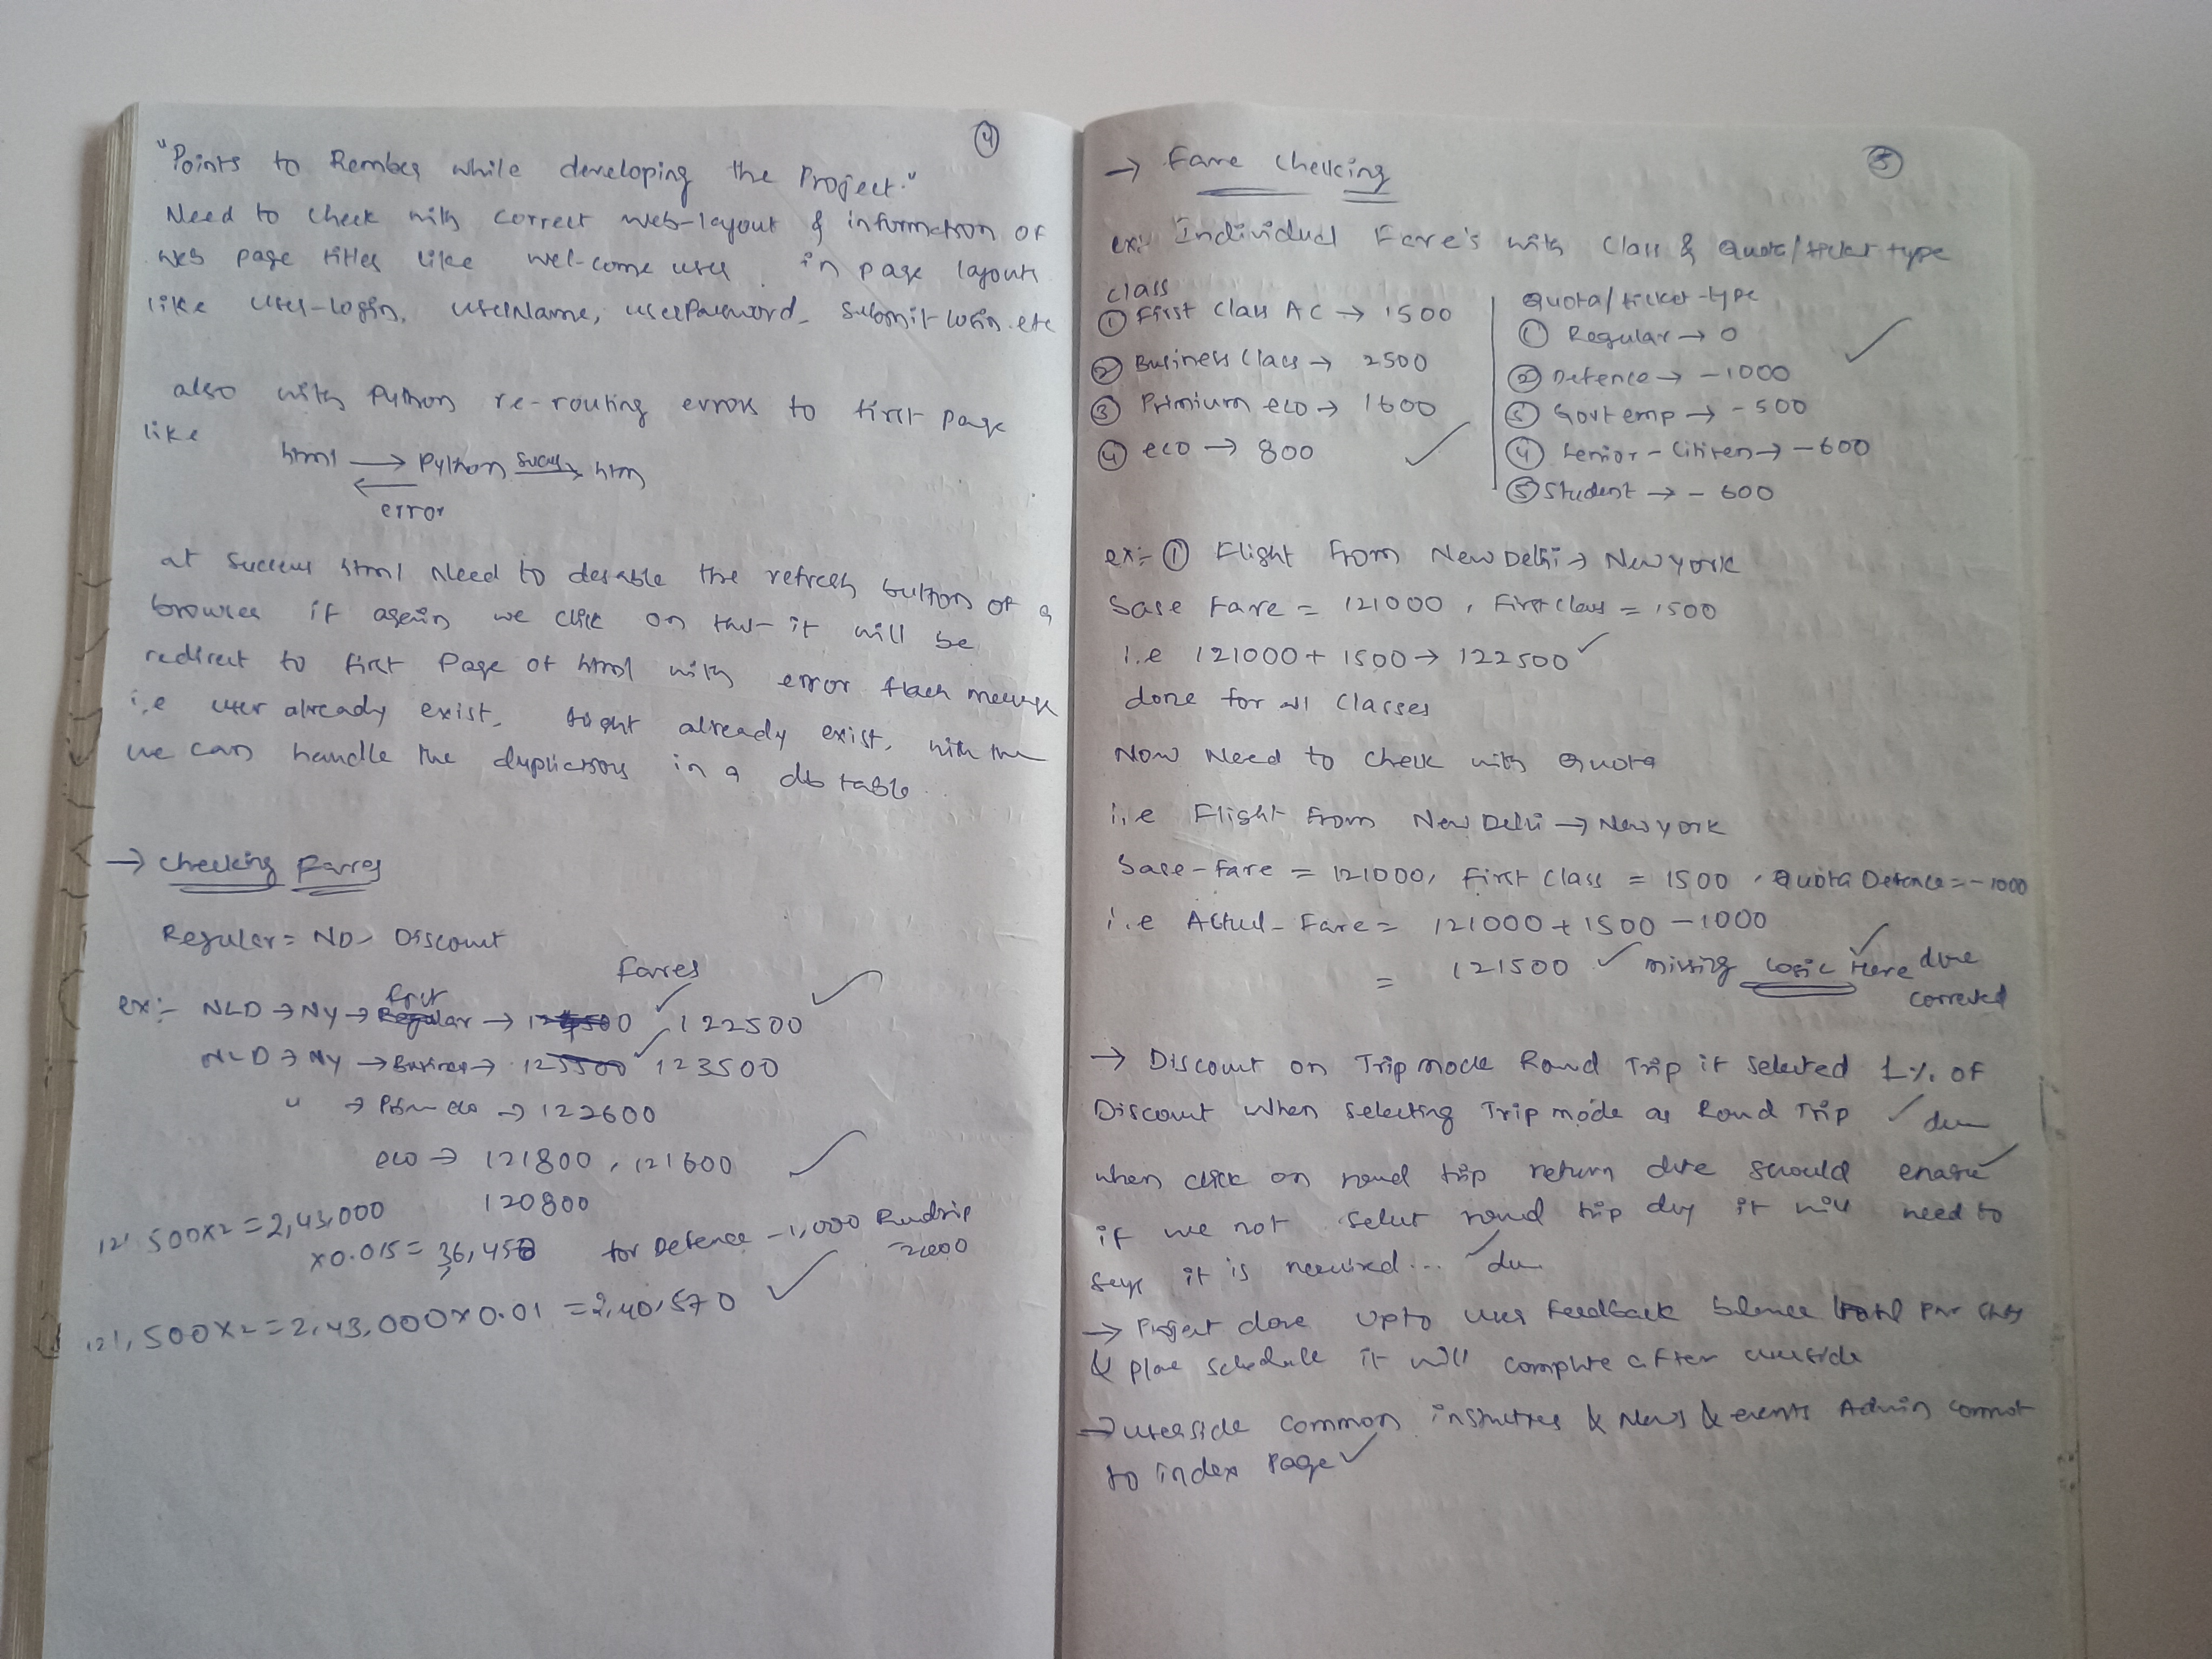 ④
"Points to Rember while developing the Project."
Need to check with correct web-layout & information of
web page titles like wel-come user in page layout
like user-login, userName, userPassword submit-login etc
also with Python re-routing error to first page
like html → Python success→ html
←
error
at success html Need to disable the refresh button of a
browser if again we click on that it will be
redirect to first page of html with error flash
i.e user already exist, already exist, with the
we can handle the duplictions in a db table
→ Checking Fares
Reguler = No Discount
Fares
ex:- NLD → NY → First → 122500
NLD → NY → Business → 123500
" → Prm-eco → 122600
eco → 121800, 121600
120800
121,500x2 = 2,43,000
x0.015 = 36,450 for Defence -1,000 Rundtrip
-2000
121,500x2 = 2,43,000x0.01 = 2,40,570 ✓
⑤
→ Fare Checking
ex:- Individual Fare's with Class & Quota/ticket type
Class
① First Class AC → 1500
② Business Class → 2500
③ Primium eco → 1600
④ eco → 800
Quota/ticket-type
① Regular → 0
② Defence → -1000
③ Govt emp → -500
④ Senior-Citizen → -600
⑤ Student → -600
ex:- ① Flight from New Delhi → New york
base fare = 121000, First class = 1500
i.e 121000 + 1500 → 122500 ✓
done for all classes
Now Need to check with Quota
i.e Flight from New Delhi → New york
base-fare = 121000, First class = 1500, Quota Defence = -1000
i.e Actul-Fare = 121000 + 1500 - 1000
= 121500 ✓ missing logic Here ✓ done
corrected
→ Discount on Trip mode Round Trip if selected 1% of
Discount when selecting Trip mode as Round Trip ✓
when click on round trip return date should enable ✓
if we not select round trip day it will need to
says it is required... ✓
→ Project done upto user feedback balance
& plane schedule it will complete after userside
→ userside common & News & events Admin
to index page ✓